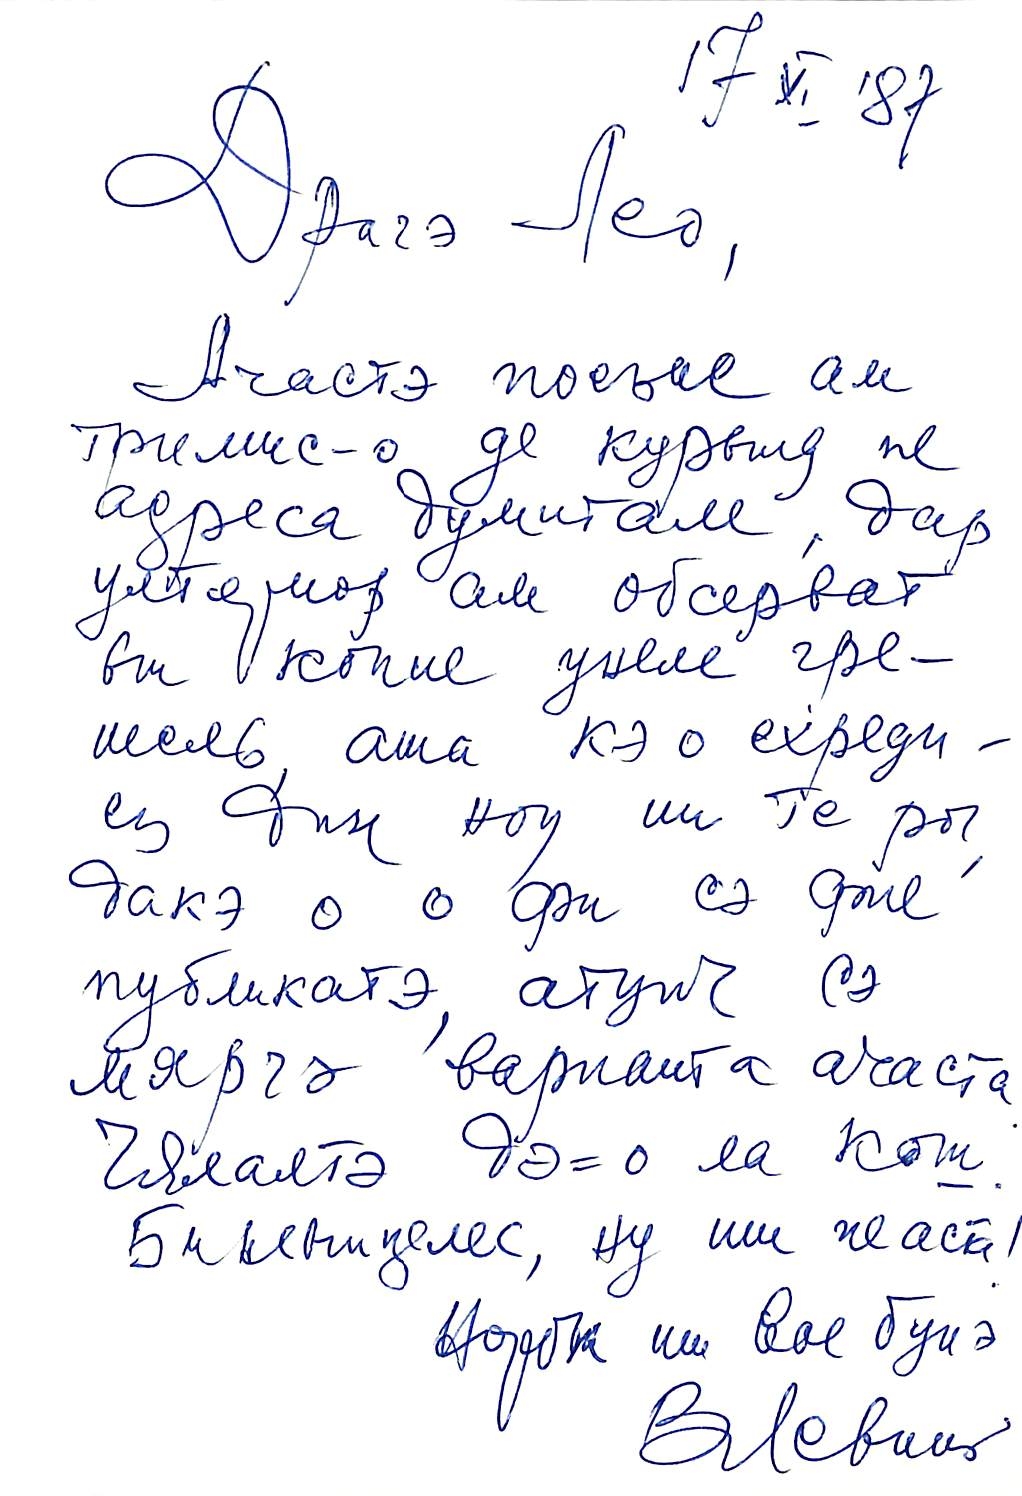 17 XI '87
Драгэ Лео,
Ачастэ поезие ам
тримис-о де курынд пе
адреса думитале, дар
ултериор ам обсерват
ын копие унеле гре-
шель, аша кэ о експеди-
ез дин ноу ши те рог,
дакэ о о фи сэ фие
публикатэ, атунч сэ
мяргэ варианта ачаста
Чялалтэ дэ=о ла кош.
Бинеынцелес, ну ши пе аста!
Норок ши вое бунэ
В Левин